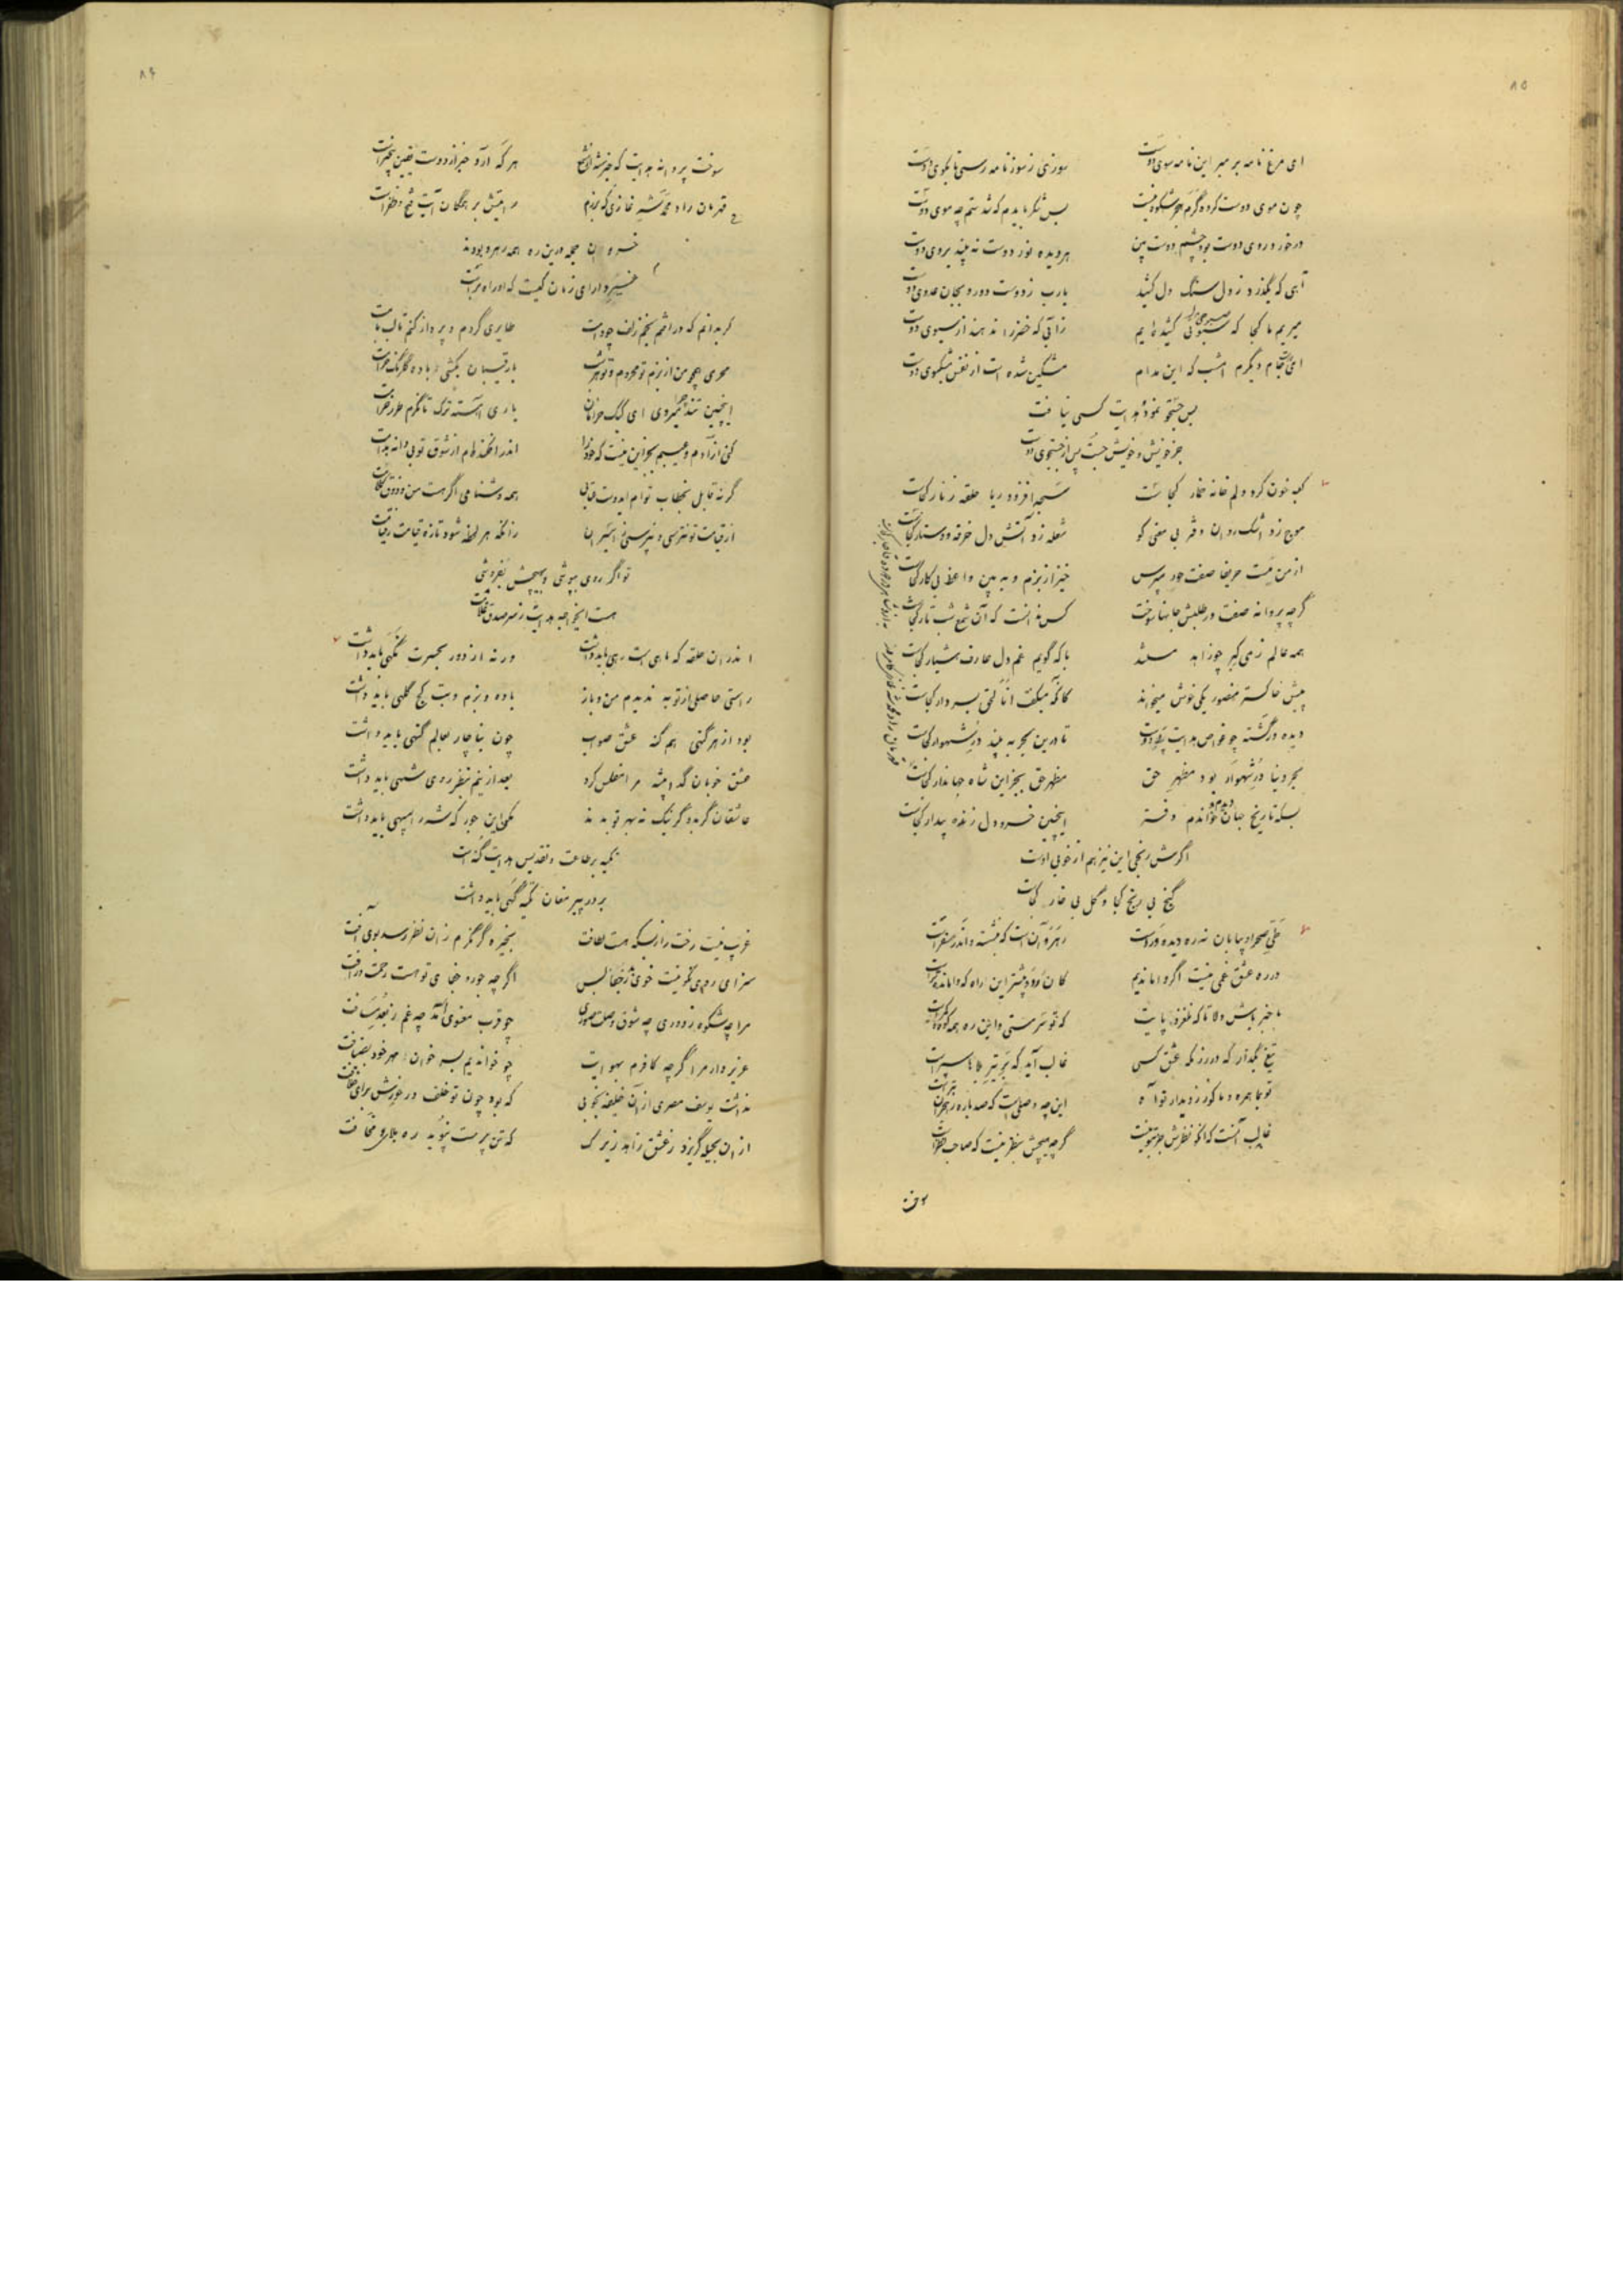 ۸۵
ای مرغ نامه بر ببر این نامه سوی دوست سوزی ز سوز نامه رسی تا بکوی دوست
چون موی دوست کرده گرم هجر شکوه نیست بس شکر بایدم که شدستم چه موی دوست
در خور روی دوست بود چشم دوست بین هر دیده نور دوست نه بیند بروی دوست
آهی که بگذرد ز دل سنگ دل کشید یارب ز دوست دور و بجان عدوی دوست
میریم ما کجا که سبوئی کشیده ایم زآبی که خضر را ندهند از سبوی دوست
جام دیگرم امشب که این مدام مشکین شده است از نفس مشکبوی دوست
بس جستجو نمود هدایت کسی نیافت
جز خویش و خویش جست پس از جستجوی دوست
کعبه خون کرد دلم خانه خمار کجاست سبحه افزود ریا حلقه زنار کجاست
موج زد اشک روان دفتر بی معنی کو شعله زد آتش دل خرقه و دستار کجاست
از من مست حریفا صفت حور مپرس خیز از بزم و به بین واعظ بی کار کجاست
گرچه پروانه صفت در طلبش جانها سوخت کس ندانست که آن شمع شب تار کجاست
همه عالم ز می کبر چو زاهد مستند با که گویم غم دل عارف هشیار کجاست
پیش خاکستر منصور یکی خوش میخواند کانکه میگفت انا الحق بسر دار کجاست
دیده در گشته چو غواص هدایت تا درین بحر به بیند در شهوار کجاست
بحر دنیا در شهوار بود مظهر حق مظهر حق بجز این شاه جهاندار کجاست
بسکه تاریخ جهان خواندم و دفتر اینچنین خسرو دل زنده بیدار کجاست
اگرش رنجی این نیز هم از خوبی اوست
گنج بی رنج کجا و گل بی خار کجاست
طی صحرا و بیابان نه ره دیده ور است رهرو آن است که بنشسته و اندر سفر است
در ره عشق غمی نیست اگر وا ماندیم کان رود پیشتر این راه که وامانده تر است
با خبر باش دلا تا که نلغزد پایت که تو سرمستی و این ره همه کوه و کمر است
تیغ بگذار که در رزمگه عشق کسی غالب آید که بر تیر بلا سپر است
تو بما همره و ما کور ز دیدار تو آه این چه وصلی است که صد باره ز هجران بتر است
غالب آنست که آنکو نظرش جز بتو نیست گرچه هیچش بنظر نیست که صاحب نظر است
سوخت
۸۶
سوخت پروانه هدایت که خبر شد از شمع هر که آرد خبر از دوست یقین بیخبر است
قهرمان راد محمد شه غازی که برزم رایتش بر همگان آیت فتح و ظفر است
خسروان عجم درین ره همه رهرو بودند
خسرو دارای زمان کیست که او راهبر است
گر بدانم که در افتم بخم زلف چو دامت طایری گردم و پرواز کنم تا لب بامت
محرمی همچو من از بزم تو محروم و تو هر شب با رقیبان بکشی باده گلرنگ حرامت
اینچنین تند چرا میروی ای کبک خرامان باری آهسته ترک تا نگرم طرز خرامت
گر نه قابل بخطاب توام ایدوست عتابی همه دشنامی اگر هست من و ذوق کلامت
از قیامت تو نترسی و نپرسی ز اسیران زانکه هر لحظه شود تازه قیامت ز قیامت
تو اگر روی بپوشی و بهیچش بفروشی
هست ایخواجه هدایت ز سر صدق غلامت
اندران حلقه که ماهی است رهی باید داشت ورنه از دور بحسرت نگهی باید داشت
راستی حاصلی از توبه ندیدم من و باز باده و بزم و بت کج کلهی باید داشت
بود از هر گنهی هم گنه عشق صواب چون بناچار بعالم گنهی باید داشت
عشق خوبان گدا پیشه مرا مفلس کرد بعد ازینم بنظر روی شهی باید داشت
عاشقان گر بد و گر نیک نه بهر تو بدند
تکیه بر طاعت و تقدیس هدایت گنه است
بر در پیر مغان تکیه گهی باید داشت
غریب نیست رخت را ز بسکه هست لطافت بخیره گر نگرم زان نظر رسد بوی آفت
سزای روی نکو نیست خوی زشت اگر چه جور و جفای تو هست رحمت و رأفت
مرا چه شکوه ز دوری چه شوق وصل صوری چو قرب معنوی آمد چه غم ز بعد مسافت
عزیز دار مرا گرچه کافرم بهوایت چو خواندیم بسر خوان مهر خود بضیافت
نداشت یوسف مصری از آن خلیفه بخوبی که بود چون تو خلف در خورش برای خلافت
از آن بحیله گریزد ز عشق زاهد زیرک که تن پرست نپوید ره بلا ز مخافت